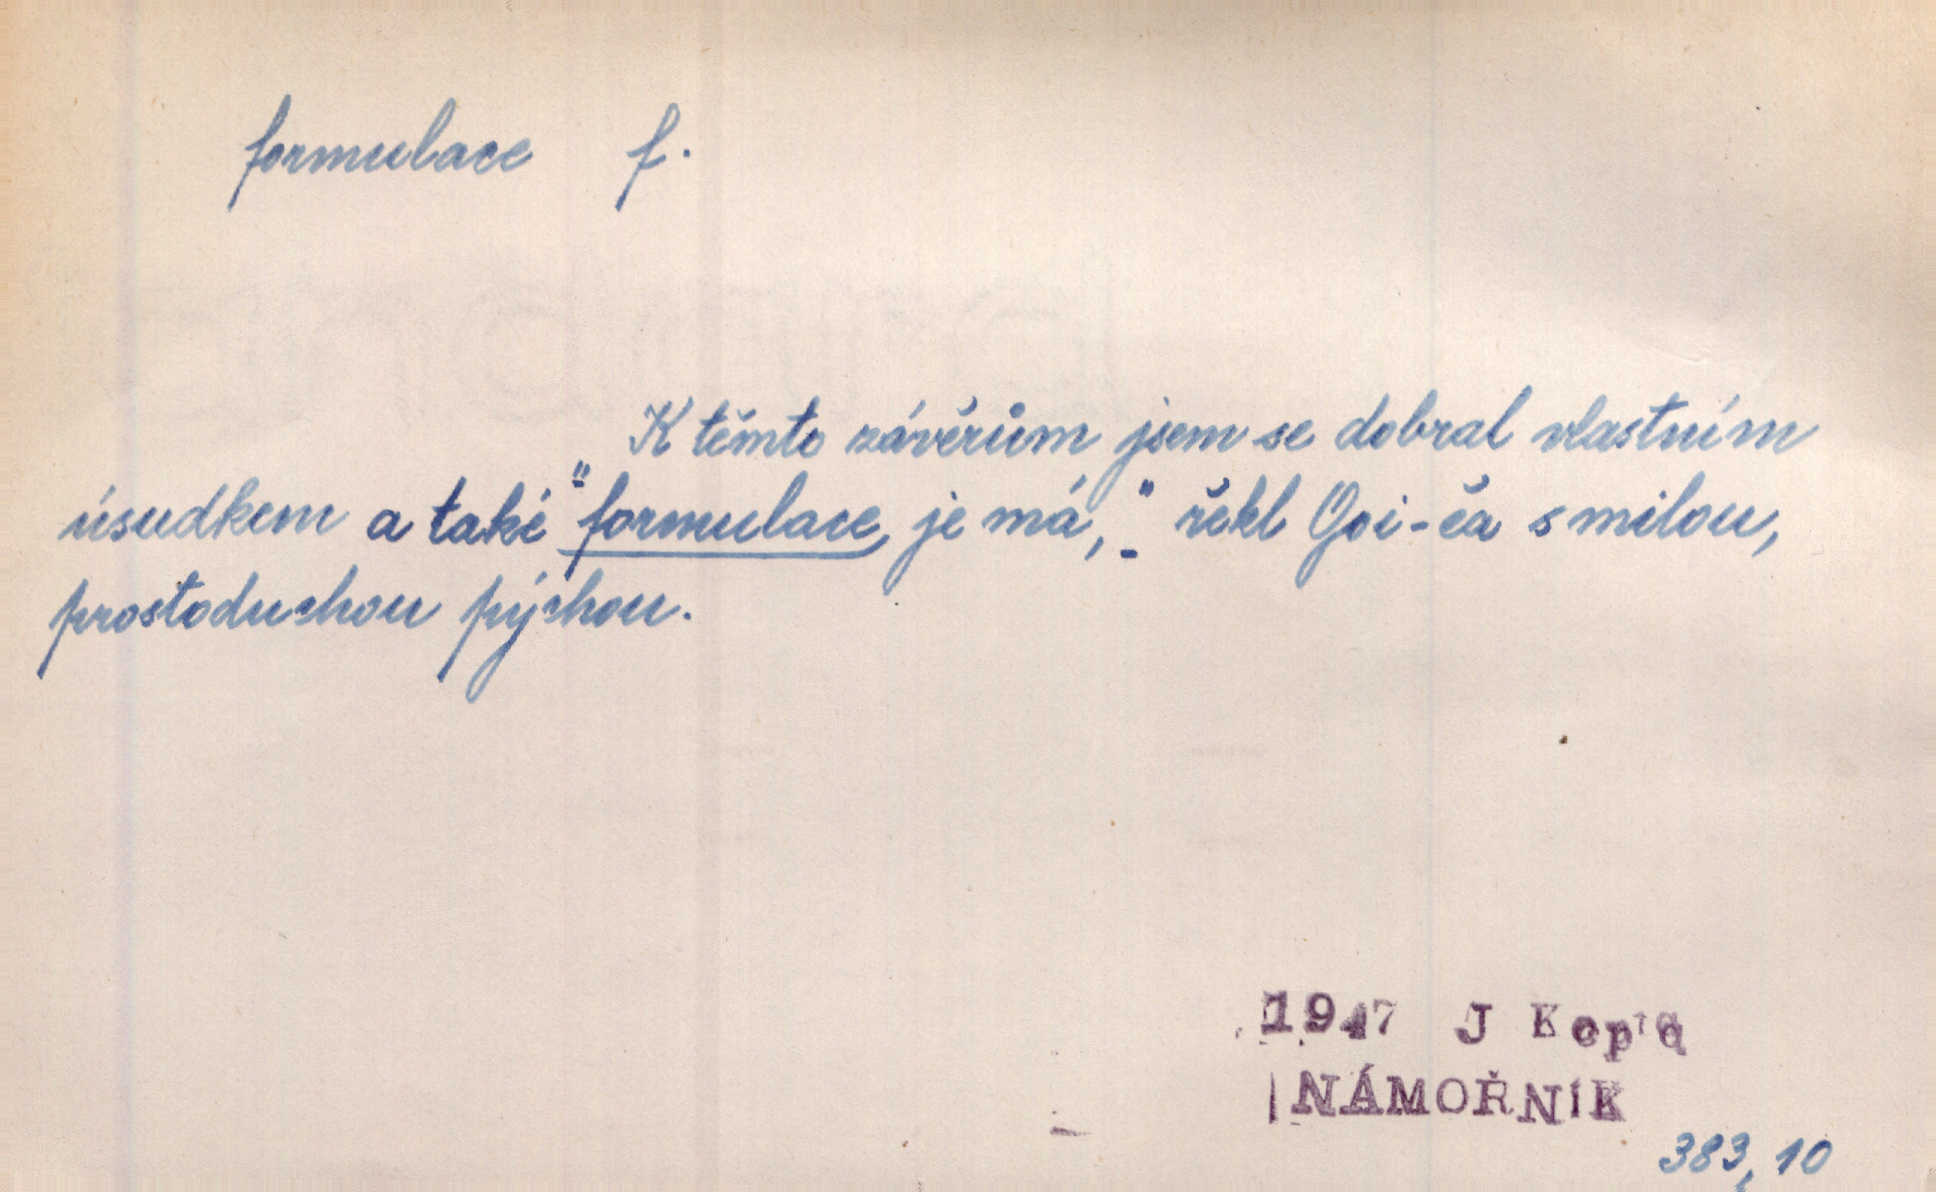 formulace f.
K těmto závěrům jsem se dobral vlastním
úsudkem a také "formulace je má," řekl Goi-ča s milou,
prostoduchou pýchou.
1947 J Kopta
NÁMOŘNÍK
383,10